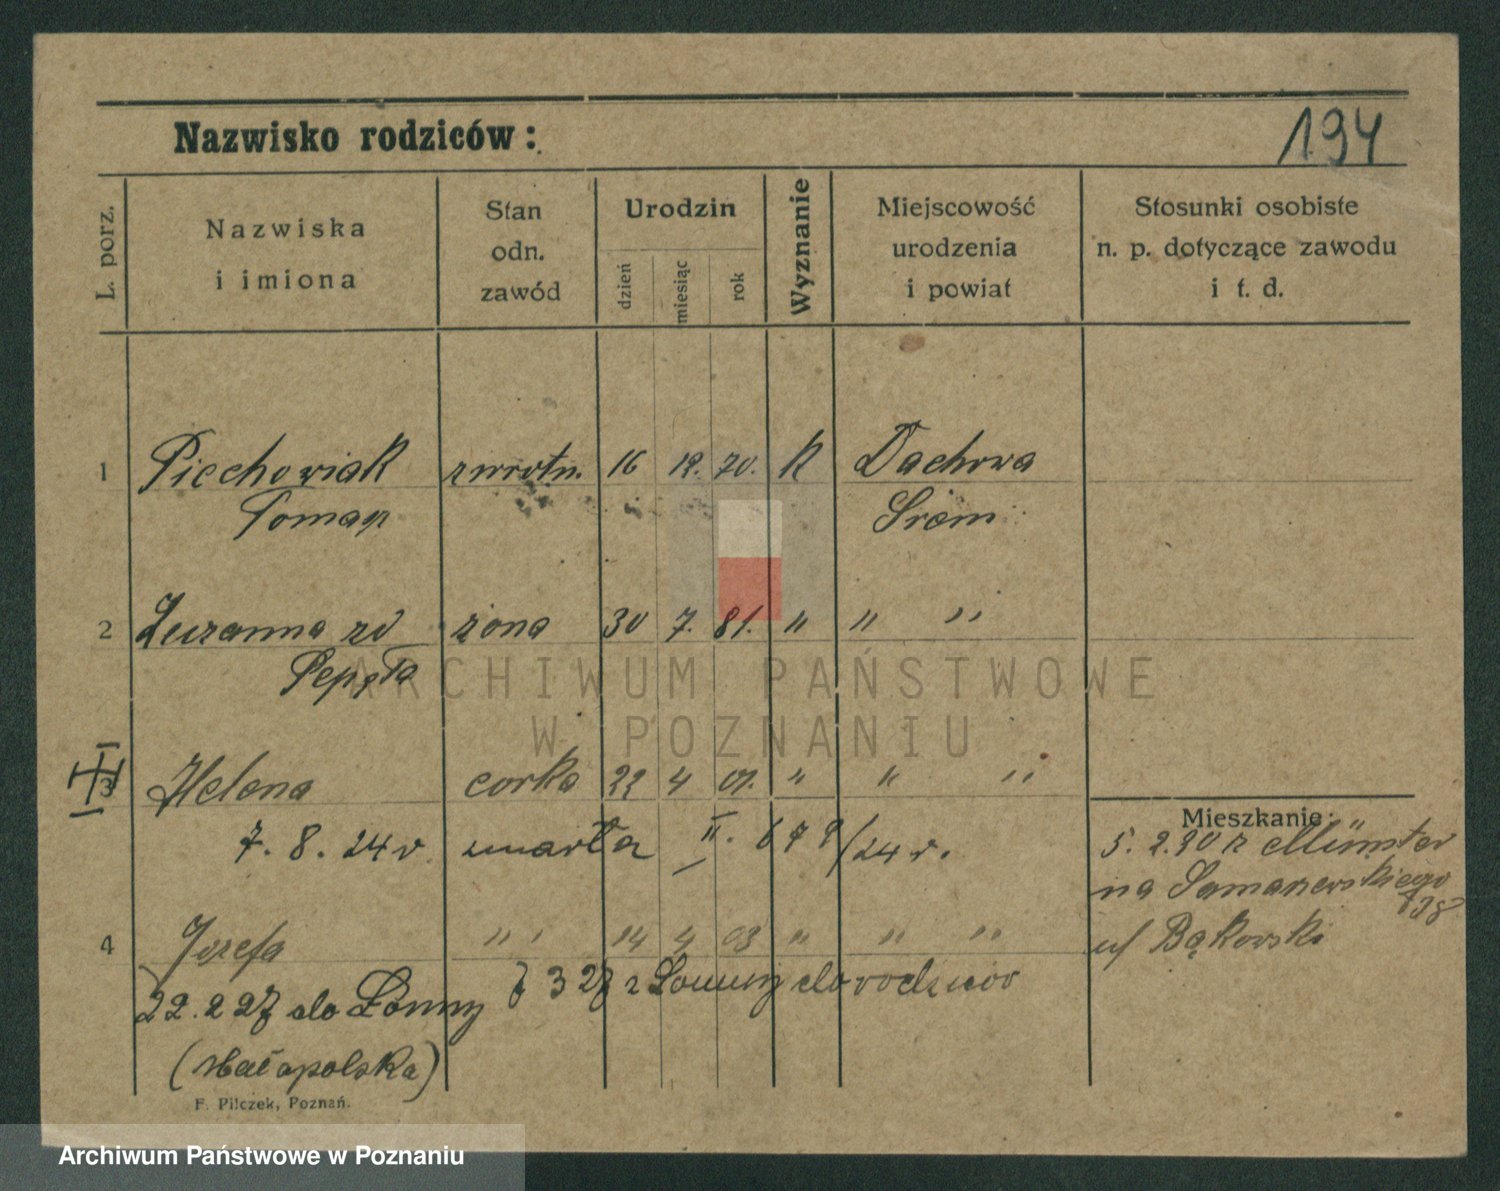 194
Nazwisko rodziców:
L. porz.
Nazwiska
i imiona
Stan
odn.
zawód
Urodzin
dzień
miesiąc
rok
Wyznanie
Miejscowość
urodzenia
i powiat
Stosunki osobiste
n. p. dotyczące zawodu
i t. d.
1 Piechowiak zwrotn. 16 12. 70. K Dachowa
Tomasz Śrem
2 Zuzanna zd żona 30 7. 81. " " "
Pepeta
3 Helena corka 22 4 01. " " "
7. 8. 24 r. umarła II. 679/24 r.
Mieszkanie:
5. 2. 30 r Münster
na Samarzewskiego
u/ Bąkowski
4 Józefa " " 14 4 03 " " "
22. 2 27 do Łomny 7 3 27 z Łomny do rodziców
(Małopolska)
F. Pilczek, Poznań.
ARCHIWUM PAŃSTWOWE
W POZNANIU
Archiwum Państwowe w Poznaniu